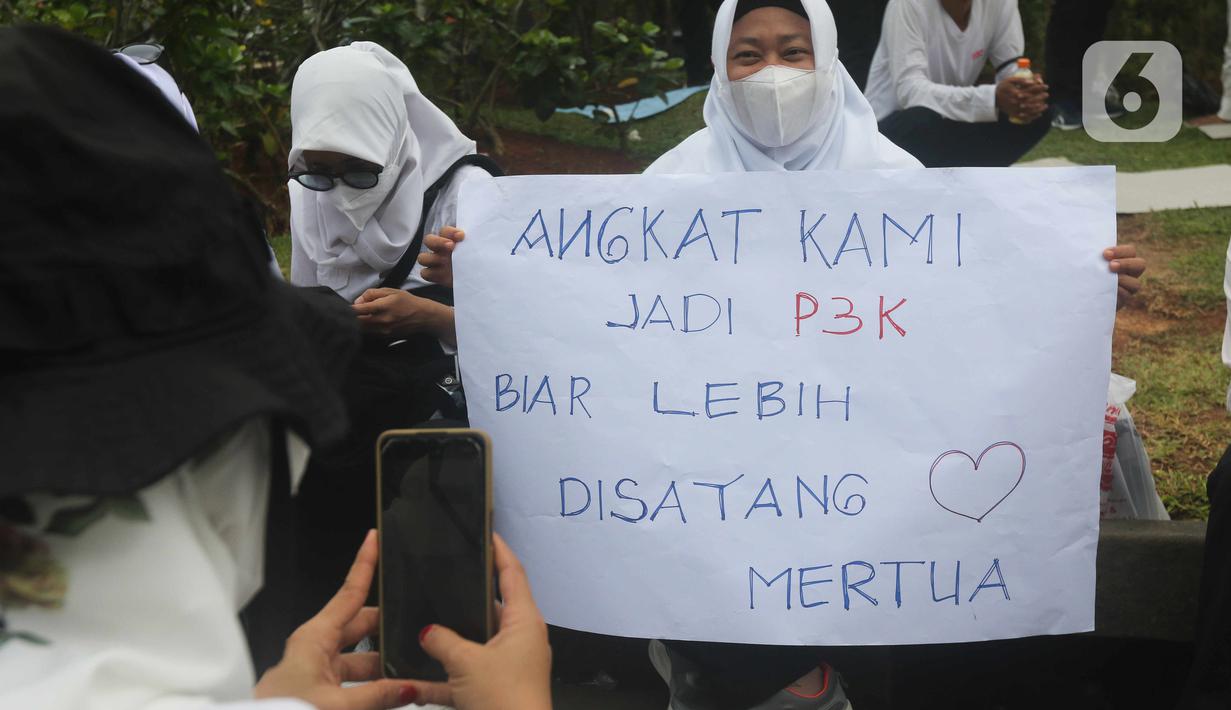 ANGKAT KAMI
JADI P3K
BIAR LEBIH
DISAYANG
MERTUA
6